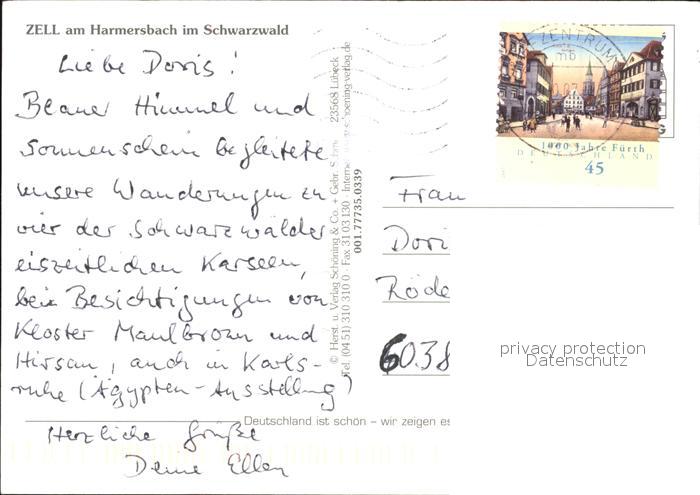 ZELL am Harmersbach im Schwarzwald
Liebe Doris!
Blauer Himmel und
Sonnenschein begleitete
unsere Wanderungen zu
vier der Schwarzwälder
eiszeitlichen Karseen,
bei Besichtigungen von
Kloster Maulbronn und
Hirsau, auch in Karls-
ruhe (Ägypten-Ausstellung)
Herzliche Grüße
Deine Ellen
© Herst. u. Verlag Schöning & Co. + Gebr. 23568 Lübeck
Tel. (04 51) 310 310 0 · Fax 31 03 130 · Internet: schoening-verlag.de
001.77735.0339
Deutschland ist schön – wir zeigen es
ZENTRUM
mb
1000 Jahre Fürth
DEUTSCHLAND
45
Frau
Dori
Röde
6038
privacy protection
Datenschutz